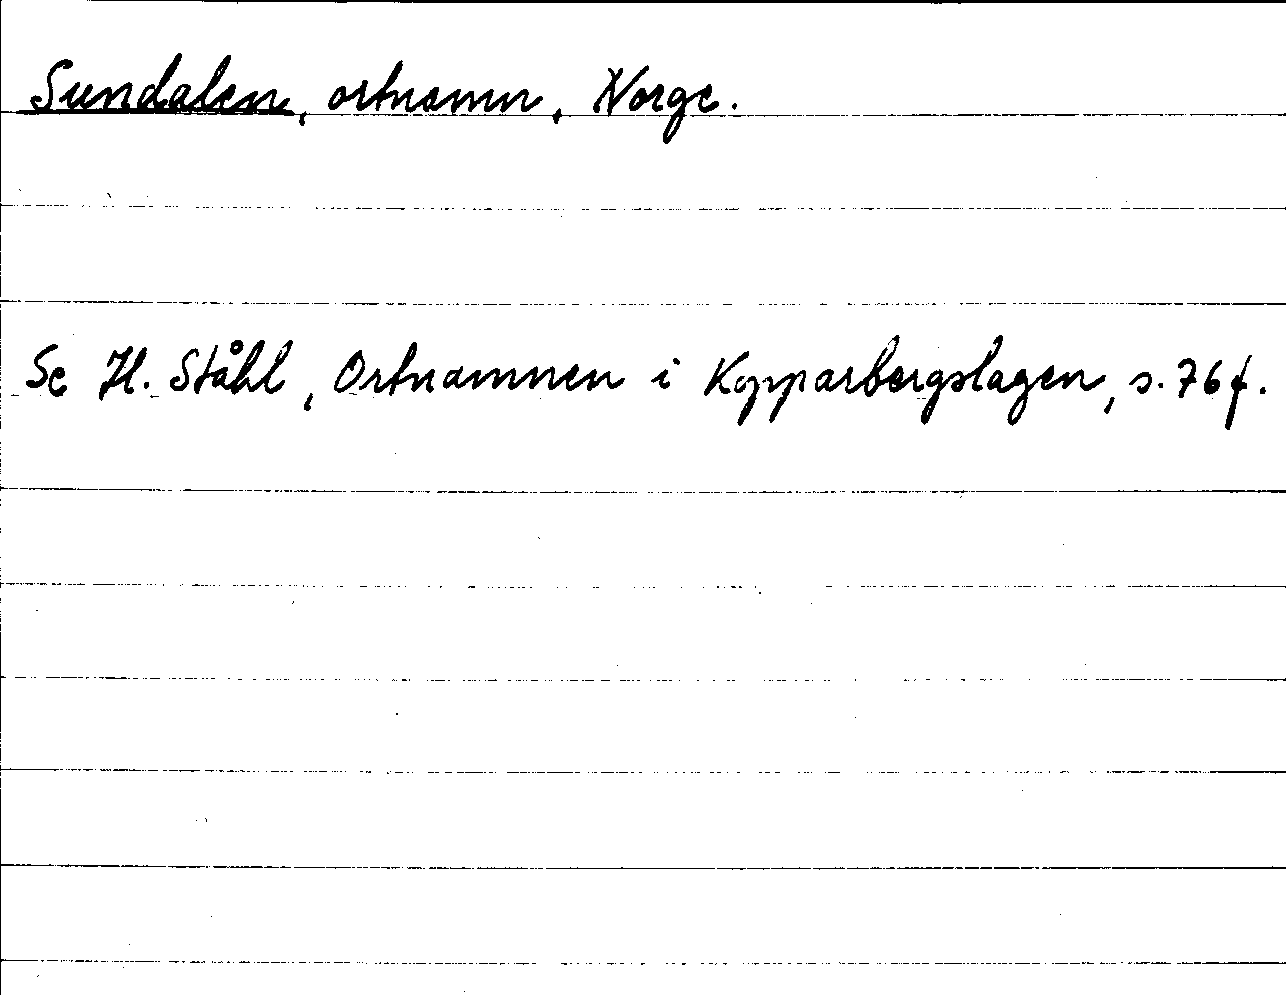 Sundalen, ortnamn, Norge.
Se H. Ståhl, Ortnamnen i Kopparbergslagen, s. 76 f.